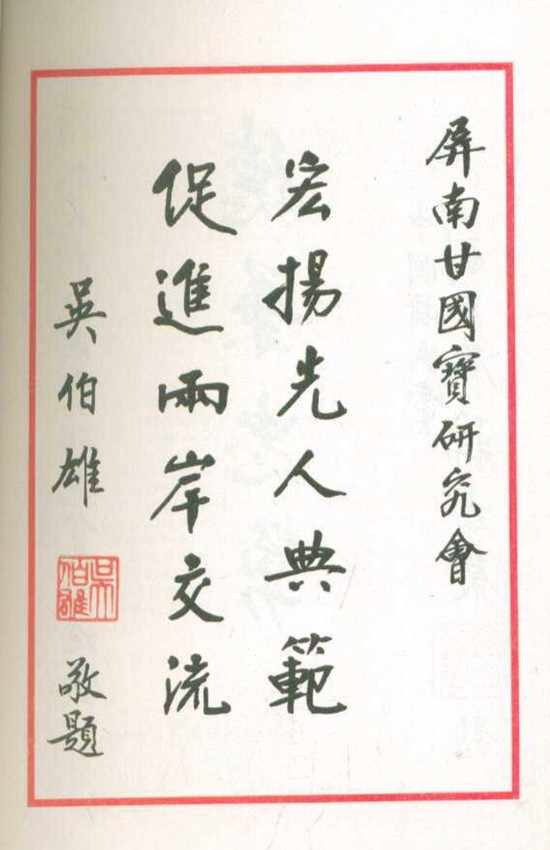 屏南甘國寶研究會
宏揚先人典範
促進兩岸交流
吳伯雄
吳伯雄
敬題